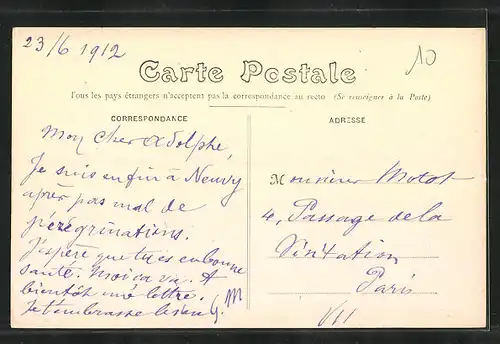 23/6 1912
10
Carte Postale
Tous les pays étrangers n'acceptent pas la correspondance au recto (Se renseigner à la Poste)
CORRESPONDANCE
Mon cher Adolphe,
Je suis enfin à Neuvy
après pas mal de
pérégrinations.
J'espère que tu es en bonne
santé. Moi ça va. A
bientôt une lettre.
Je t'embrasse bien
ADRESSE
Monsieur Motot
4, Passage de la
Visitation
Paris
VII